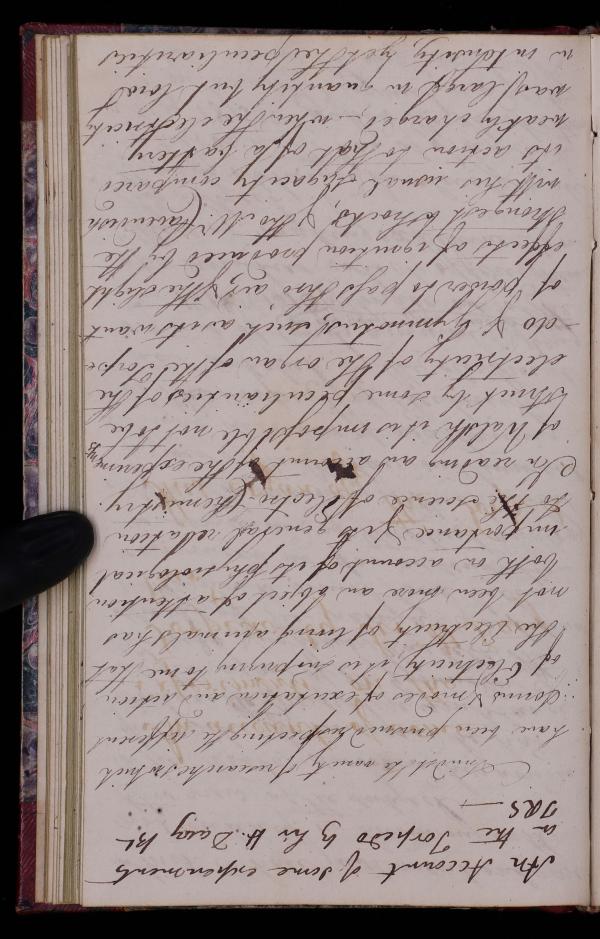 An Account of some experiments
on the Torpedo by Sir H. Davy Bt
FRS —
Amidst the variety of researches which
have been pursued respecting the different
forms & modes of excitation and action
of Electricity it is surprizing to me that
the Electricity of living animals has
not been more an object of attention
both on account of its physiological
importance & its general relation
to the science of Electro Chemistry.
In reading an account of the experiments
of Walsh it is impossible not to be
struck by some peculiarities of the
electricity of the organ of the Torpe
do & Gymnotus, such as its want
of power to pass thro air, & the slight
effects of ignition produced by the
strongest shocks, & tho Mr. Cavendish
with his usual sagacity compares
its action to that of a battery
weakly charged – when the electricity
was large in quantity but low
in intensity, yet the peculiarities